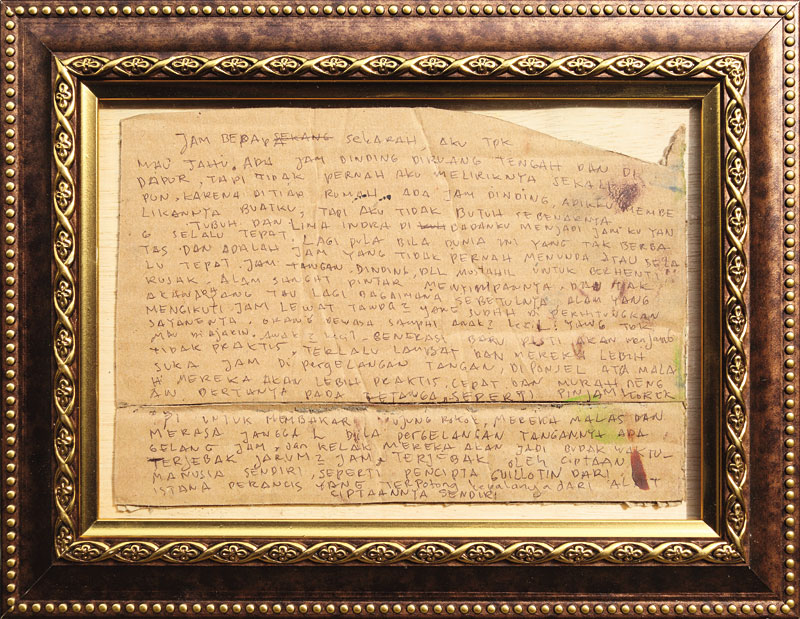 JAM BERAPA SEKANG SEKARAH AKU TDK
MAU TAHU. ADA JAM DINDING DIRUANG TENGAH DAN DI
DAPUR, TAPI TIDAK PERNAH AKU MELIRIKNYA SEKALI
PUN, KARENA DI TIAP RUMAH ADA JAM DINDING, ADIKKU MEMBE
LIKANNYA BUATKU, TAPI AKU TIDAK BUTUH SEBENARNYA
TUBUH DAN LIMA INDRA DI BADANKU MENJADI JAMKU YAN
G SELALU TEPAT. LAGI PULA BILA DUNIA INI YANG TAK BERBA
TAS DAN ADALAH JAM YANG TIDAK PERNAH MENUNDA ATAU SELA
LU TEPAT. JAM TANGAN, DINDING, DLL MUSTAHIL UNTUK BERHENTI
RUSAK, ALAM SANGAT PINTAR MENYIMPANNYA, DAN TIDAK
AKAN YANG TAU LAGI BAGAIMANA SEBETULNYA ALAM YANG
MENGIKUTI JAM LEWAT TANDA2 YANG SUDAH DI PERHITUNGKAN
SAYANGNYA, ORANG DEWASA SAMPAI ANAK2 KECIL, YANG TDK
MAU DIAJARIN, ANAK2 KECIL GENERASI BARU PASTI AKAN MENJAWAB
TIDAK PRAKTIS, TERLALU LAMBAT DAN MEREKA LEBIH
SUKA JAM DI PERGELANGAN TANGAN, DI PONSEL ATAU MALA
H MEREKA AKAN LEBIH PRAKTIS, CEPAT DAN MURAH DENG
AN BERTANYA PADA TETANGGA, SEPERTI PINJAM KOREK
API UNTUK MEMBAKAR UJUNG ROKOK, MEREKA MALAS DAN
MERASA JANGGAL BILA PERGELANGAN TANGANNYA ADA
GELANG JAM, DAN KELAK MEREKA AKAN JADI BUDAK WAKTU
TERJEBAK JARUM2 JAM, TERJEBAK OLEH CIPTAAN
MANUSIA SENDIRI, SEPERTI PENCIPTA GUILLOTIN DARI
ISTANA PERANCIS YANG TERPOTONG KEPALANYA DARI ALAT
CIPTAANNYA SENDIRI